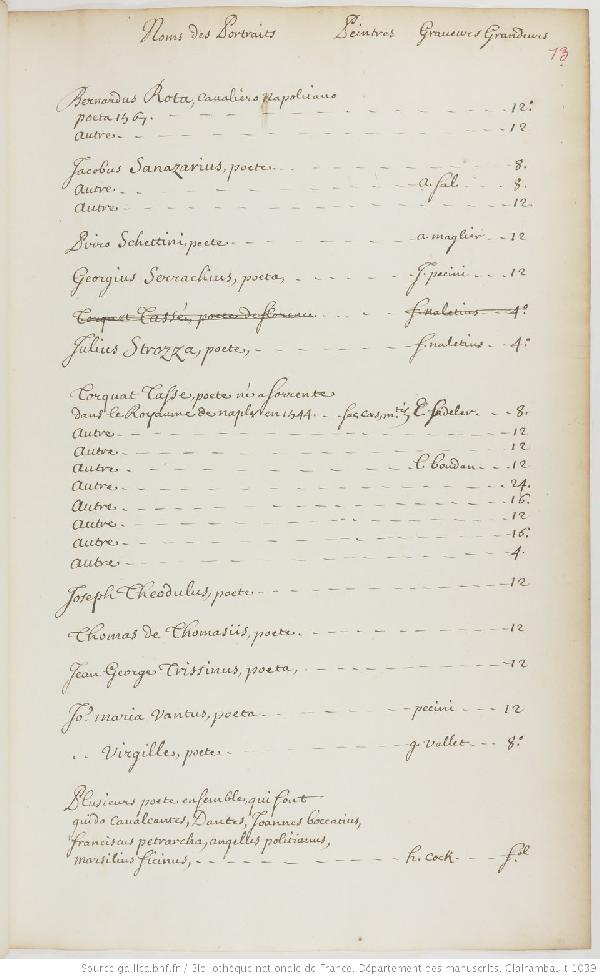 Noms des Portraits Peintres Graveurs Grandeurs
73
Bernardus Rota, Cavaliero Napolitano
poeta 1567. 12.
autre 12
Jacobus Sanazarius, poete 8.
Autre a. sal. 8.
Autre 12.
Pirro Schettini, poete a. maglier 12
Georgius Serrachius, poeta, J. pecini 12
Torquat Tasse, poete de florence f. naletius 4.
Julius Strozza, poete, f. naletius 4.
Torquat Tasse, poete né a Sorrente
dans le Royaume de naples en 1544. Sadeler 8.
Autre 12
Autre 12
Autre l. boudan 12
Autre 24.
Autre 16.
Autre 12
Autre 16.
Autre 4.
Joseph Theodulus, poete 12
Thomas de Thomasiis, poete 12
Jean George Trissinus, poeta, 12
Jo. maria Vantus, poeta pecini 12
.. Virgille, poete g. vallet 8.
Plusieurs poete ensemble, qui sont
guido Cavalcantes, Dantes, Joannes boccatius,
franciscus petrarcha, angelles politianus,
marsilius ficinus, h. cock fol
Source gallica.bnf.fr / Bibliothèque nationale de France. Département des manuscrits. Clairambault 1039